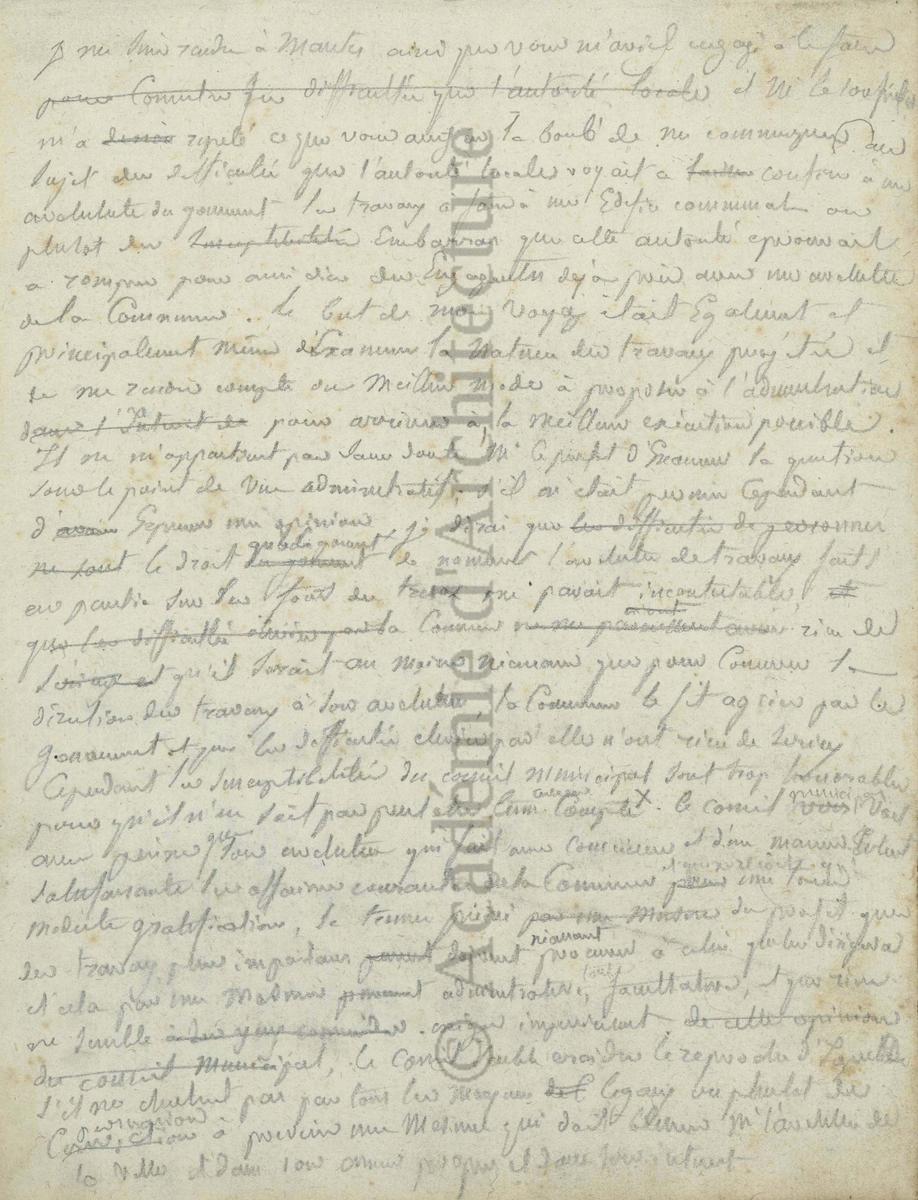 Je me suis rendu à Mantes ainsi que vous m'aviez engagé à le faire
pour Connaitre les difficultés que l'autorité locale et Mr le sous préfet
m'a répété ce que vous aviez eu la bonté de me communiquer au
Sujet des difficultés que l'autorité locale voyait à confier à un
architecte du gouvnment les travaux à faire à un Edifice communal ou
plutot des Susceptibilités Embarras que cette autorité eprouvait
a rompre pour ainsi dire des Engagements déjà pris avec un architecte
de la Commune. Le but de mon Voyage était Egalement et
principalement même d'Examiner la Nature des travaux projetés et
de me rendre compte du Meilleur mode à proposer à l'administration
dans l'Interet de pour arriver à la meilleure exécution possible.
Il ne m'appartient pas sans doute Mr le préfet d'Examiner la question
sous le point de Vue administratif, s'il m'était permis Cependant
d' Exprimer mon opinion, je dirai que les difficultés
ne sont le droit du gouvnment de nommer l'architecte de travaux faits
en partie sur les fonds du tresor me parait incontestable,
que les difficultés élevées par la Commune rien de
Sérieux et qu'il serait au moins que pour Conserver la
direction des travaux à son architecte, la Commune le fit agréer par le
gouvernement et que les difficultés élevées par elle n'ont rien de serieux
Cependant les susceptibilités du conseil municipal sont trop honorables
pour qu'il n'en soit pas peut etre tenu compte X. le conseil municipal voit
avec peine que son architecte qui fait avec conscience et d'une manière
Satisfaisante les affaires courantes de la Commune pour une
modeste gratification, se trouve privé par une mesure du profit que
des travaux plus importans doivent procurer à celui qui les dirigera
et cela par une mesure administrative, facultative, et que rien
ne semble exiger impérieusement. de cette opinion
du conseil municipal, le conseil craindre le reproche d'
s'il ne cherchait pas par tous les moyens légaux ou plutot de
persuasion
Conviction à prévenir une Mesure qui doit blesser Mr l'architecte de
la Ville et dans son amour propre et dans son intérêt
© Académie d'Architecture